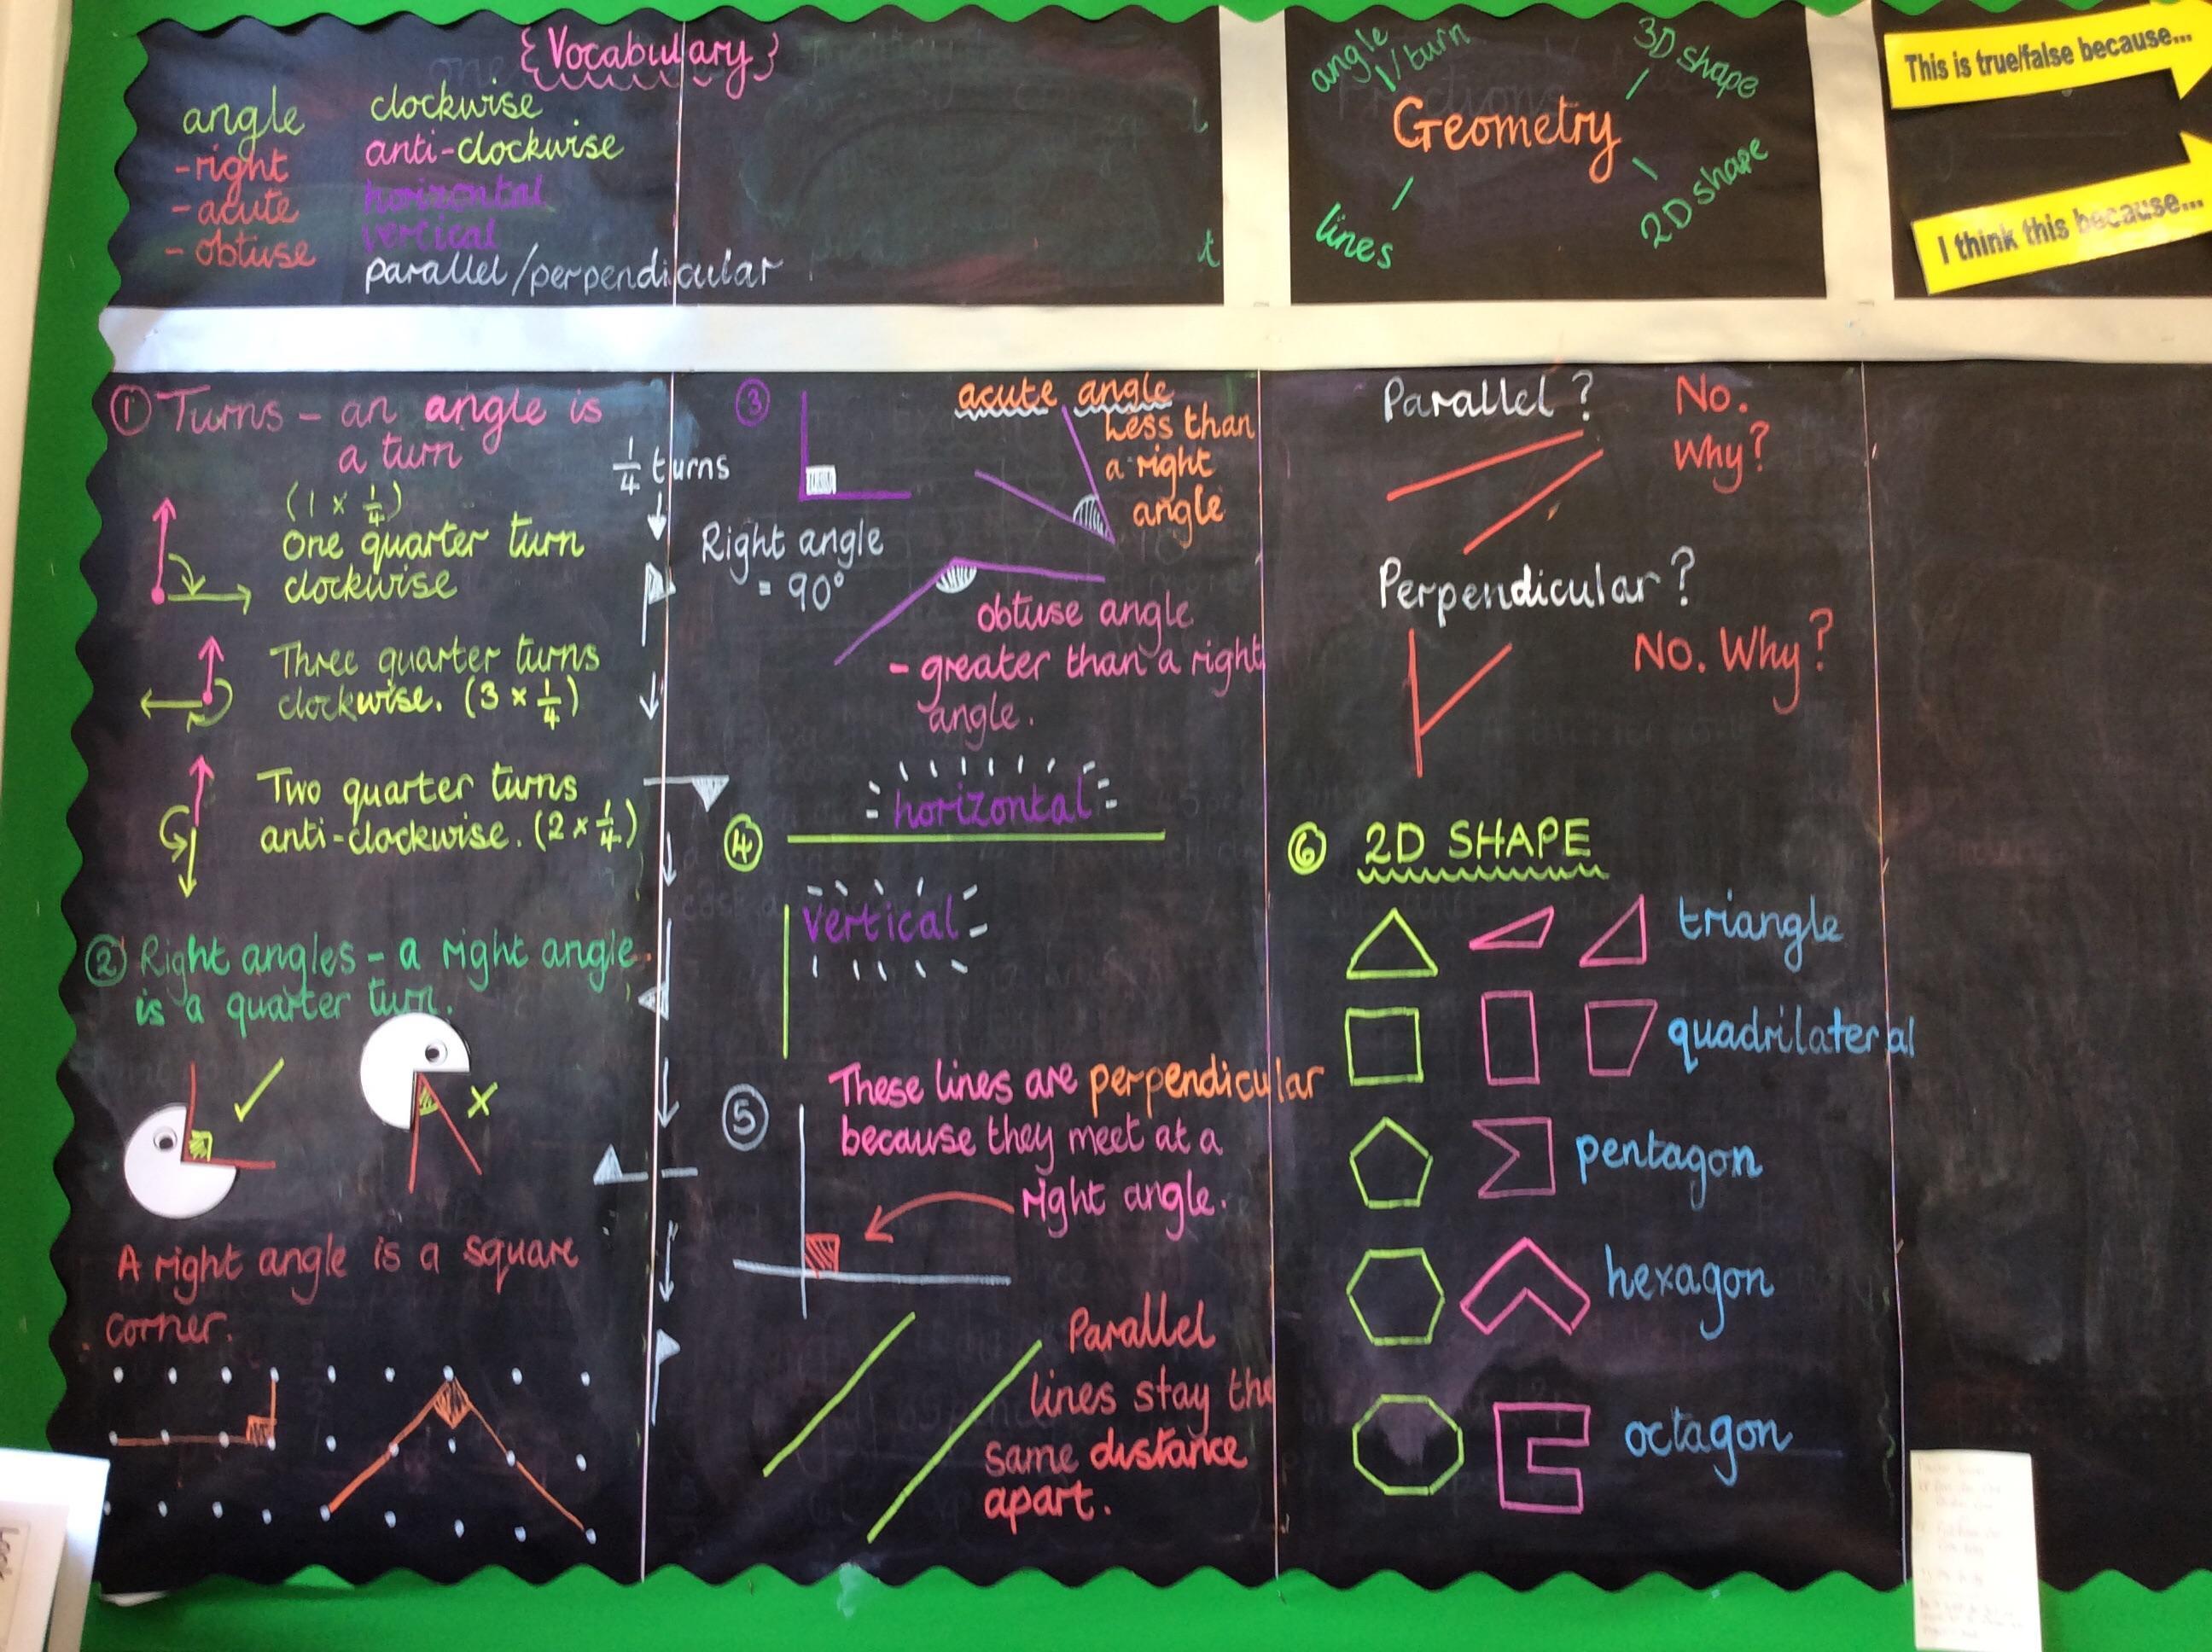 {Vocabulary}
angle
-right
-acute
-obtuse
clockwise
anti-clockwise
horizontal
vertical
parallel/perpendicular
angle
/turn
3D shape
Geometry
lines
2D shape
This is true/false because...
I think this because...
① Turns - an angle is
a turn
(1 x 1/4)
one quarter turn
clockwise
Three quarter turns
clockwise. (3 x 1/4)
Two quarter turns
anti-clockwise. (2 x 1/4)
1/4 turns
② Right angles - a right angle
is a quarter turn.
✓
x
A right angle is a square
corner.
③
Right angle
= 90°
acute angle
Less than
a right
angle
obtuse angle
- greater than a right
angle.
④
horizontal
vertical
⑤
These lines are perpendicular
because they meet at a
right angle.
Parallel
lines stay the
same distance
apart.
Parallel?
No.
Why?
Perpendicular?
No. Why?
⑥ 2D SHAPE
triangle
quadrilateral
pentagon
hexagon
octagon